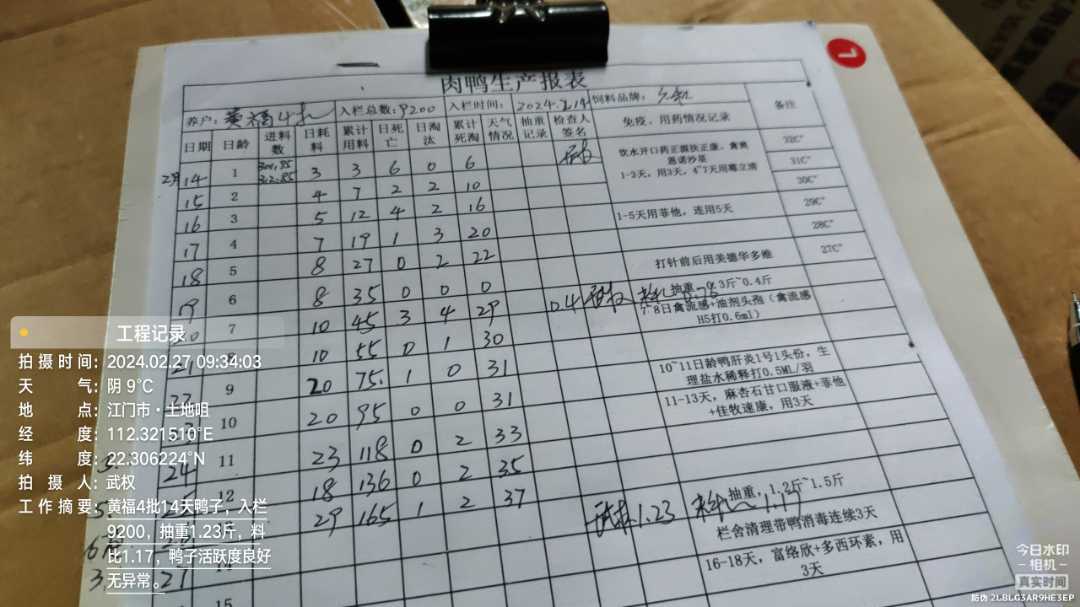 肉鸭生产报表
养户: 黄福4批 入栏总数: 9200 入栏时间: 2024.2.14 饲料品牌:
日期 日龄 进料数 日耗料 累计用料 日死亡 日淘汰 累计死淘 天气情况 抽重记录 检查人签名 免疫、用药情况记录 备注
2月14 1 3 3 6 0 6 饮水开口药正源扶正康、禽爽 32C°
恩诺沙星
1-2天,用3天,4~7天用霉立清 31C°
15 2 4 7 2 2 10 30C°
16 3 5 12 4 2 16 1-5天用菲他,连用5天 29C°
17 4 7 19 1 3 20 28C°
18 5 8 27 0 2 22 打针前后用美德华多维 27C°
19 6 8 35 0 0 0 抽重,0.3斤~0.4斤
20 7 10 45 3 4 29 0.4 7-8日禽流感+油剂头孢(禽流感
H5打0.6ml)
21 10 55 0 1 30
22 9 20 75 1 0 31 10~11日龄鸭肝炎1号1头份,生
理盐水稀释打0.5ML/羽
10 20 95 0 0 31 11-13天,麻杏石甘口服液+菲他
+佳牧速康,用3天
24 11 23 118 0 2 33
12 18 136 0 2 35
29 165 1 2 37 1.23 料比 1.17 抽重,1.2斤~1.5斤
栏舍清理带鸭消毒连续3天
27 16-18天,富络欣+多西环素,用
3天
15
工程记录
拍摄时间: 2024.02.27 09:34:03
天气: 阴 9°C
地点: 江门市·土地咀
经度: 112.321510°E
纬度: 22.306224°N
拍摄人: 武权
工作摘要: 黄福4批14天鸭子,入栏
9200,抽重1.23斤,料
比1.17,鸭子活跃度良好
无异常。
今日水印
-相机-
真实时间
防伪 2LBLG3AR9HE3EP